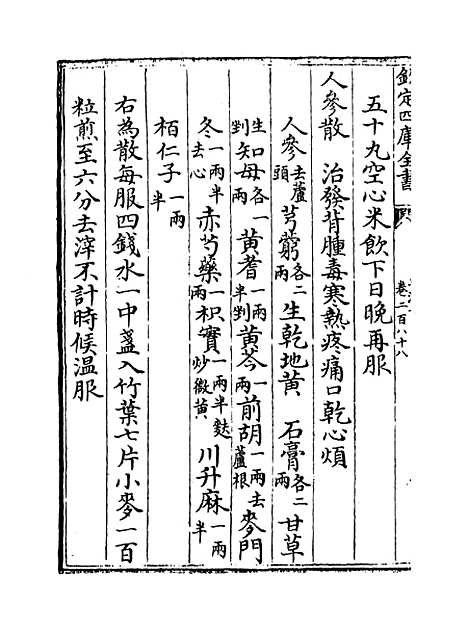 欽定四庫全書
卷二百八十八
五十丸空心米飲下日晚再服
人參散 治發背腫毒寒熱疼痛口乾心煩
人參去蘆頭 芎藭各二兩 生乾地黄 石膏各二兩 甘草
生剉 知母各一兩 黄耆一兩半剉 黄芩一兩 前胡一兩去蘆根 麥門
冬一兩半去心 赤芍藥一兩 枳實一兩半麩炒微黄 川升麻一兩半
栢仁子一兩半
右為散每服四錢水一中盞入竹葉七片小麥一百
粒煎至六分去滓不計時候温服